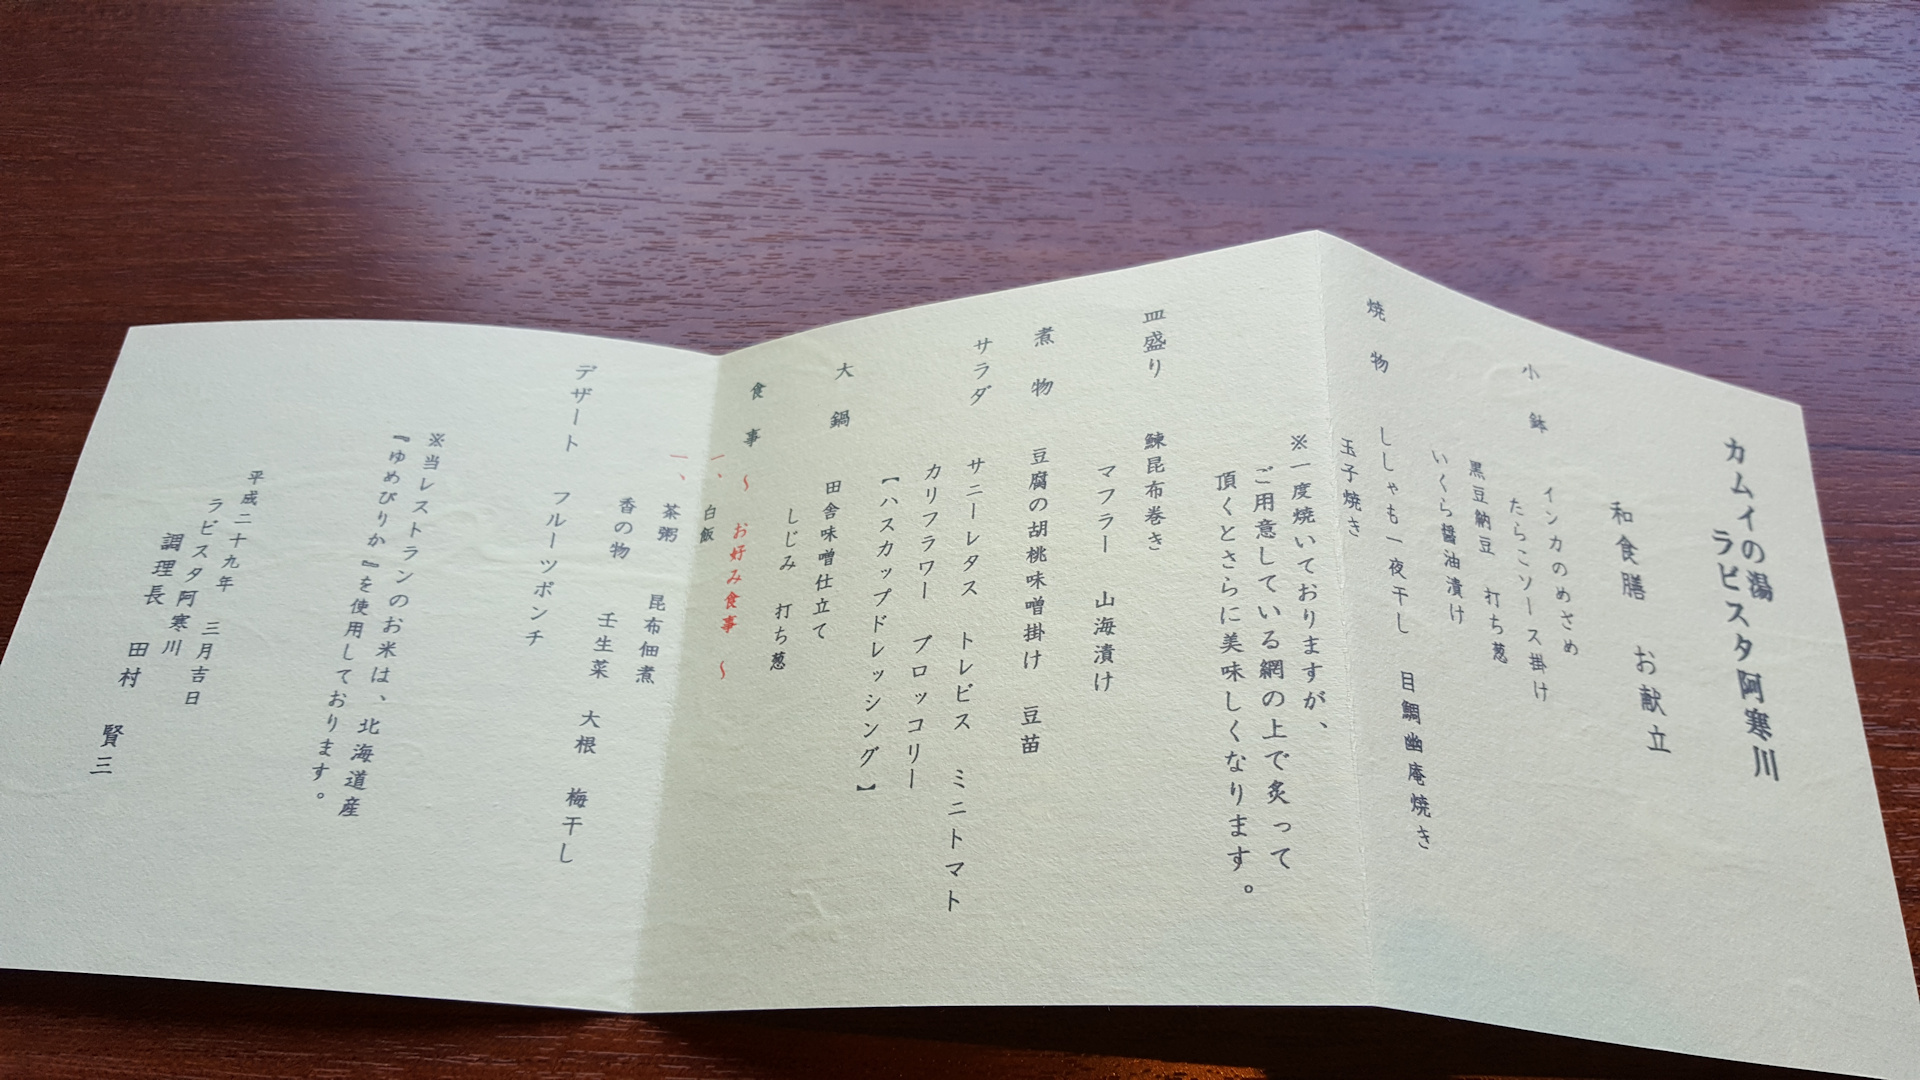 カムイの湯
ラビスタ阿寒川
和食膳　お献立
小鉢　インカのめざめ
たらこソース掛け
黒豆納豆　打ち葱
いくら醤油漬け
焼物　ししゃも一夜干し　目鯛幽庵焼き
玉子焼き
※一度焼いておりますが、
ご用意している網の上で炙って
頂くとさらに美味しくなります。
皿盛り　鰊昆布巻き
マフラー　山海漬け
煮物　豆腐の胡桃味噌掛け　豆苗
サラダ　サニーレタス　トレビス　ミニトマト
カリフラワー　ブロッコリー
【ハスカップドレッシング】
大鍋　田舎味噌仕立て
しじみ　打ち葱
食事　～　お好み食事　～
一、白飯
一、茶粥
香の物　昆布佃煮
壬生菜　大根　梅干し
デザート　フルーツポンチ
※当レストランのお米は、北海道産
『ゆめぴりか』を使用しております。
平成二十九年　三月吉日
ラビスタ阿寒川
調理長　田村　賢三